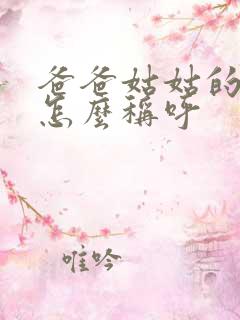 爸爸姑姑的
怎麼稱呼
唯吟